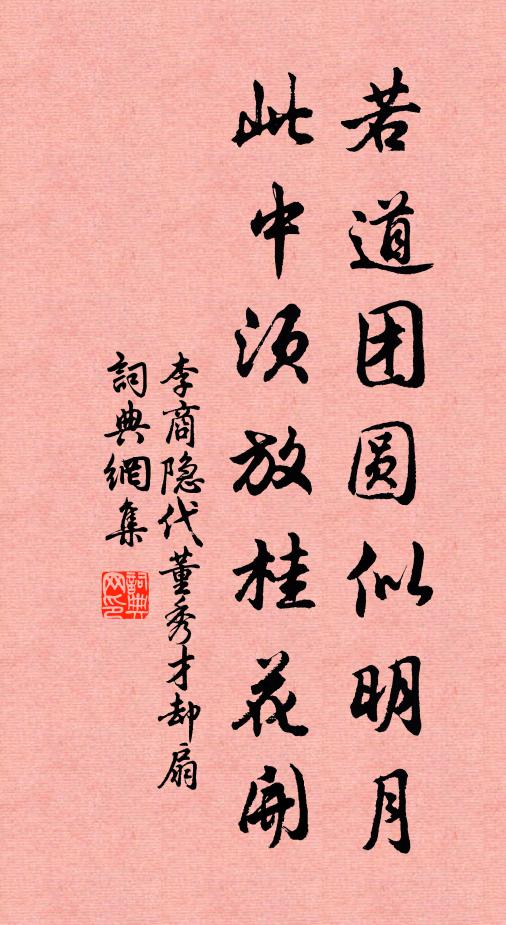 若道团圆似明月
此中须放桂花开
李商隐代董秀才却扇
詞典網集
詞典网印